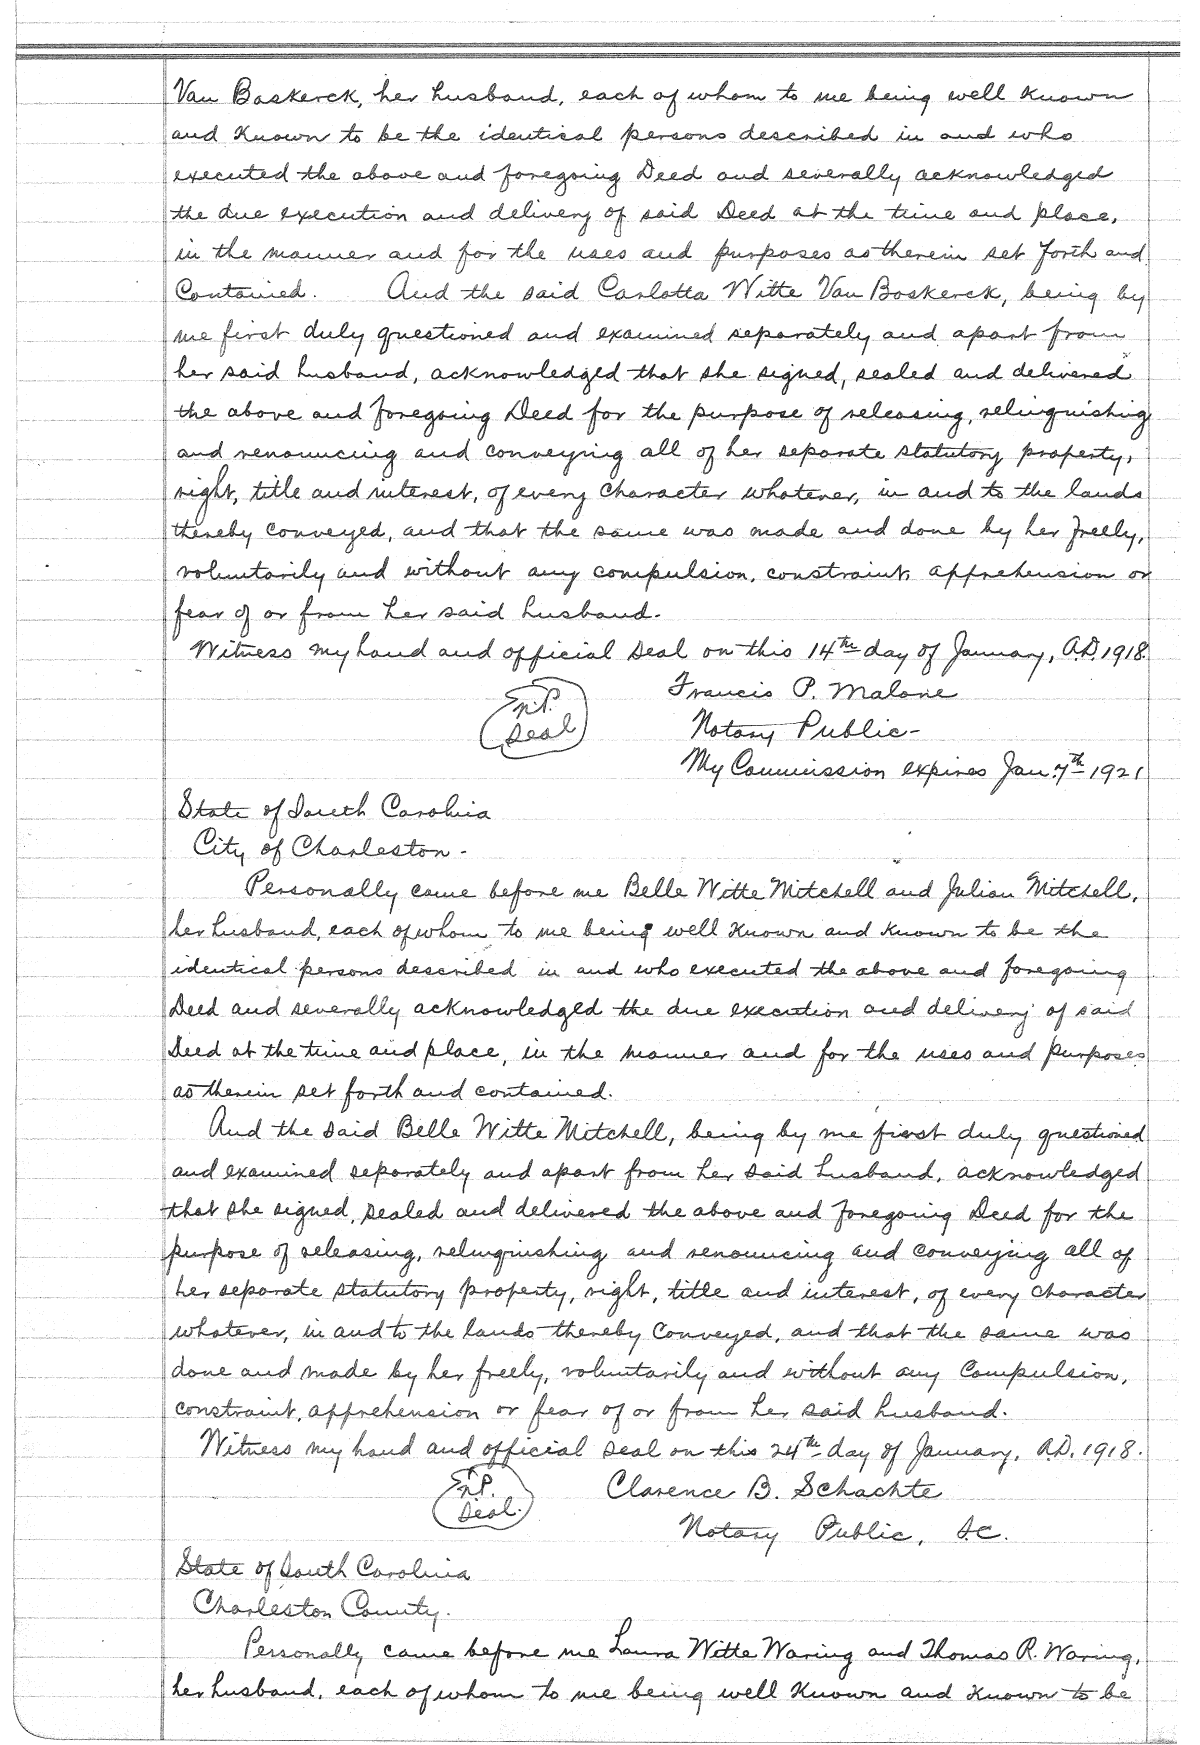 Van Boskerck, her husband, each of whom to me being well Known
and Known to be the identical persons described in and who
executed the above and foregoing Deed and severally acknowledged
the due execution and delivery of said Deed at the time and place,
in the manner and for the uses and purposes as therein set forth and
Contained. And the said Carlotta Witte Van Boskerck, being by
me first duly questioned and examined separately and apart from
her said husband, acknowledged that she signed, sealed and delivered
the above and foregoing Deed for the purpose of releasing, relinquishing
and renouncing and conveying all of her separate statutory property,
right, title and interest, of every Character whatever, in and to the lands
thereby conveyed, and that the same was made and done by her freely,
voluntarily and without any compulsion, constraint, apprehension or
fear of or from her said husband.
Witness my hand and official Seal on this 14th day of January, A.D. 1918.
Francis P. Malone
N.P. Seal
Notary Public-
My Commission expires Jan. 7th 1921
State of South Carolina
City of Charleston-
Personally came before me Belle Witte Mitchell and Julian Mitchell,
her husband, each of whom to me being well Known and Known to be the
identical persons described in and who executed the above and foregoing
Deed and severally acknowledged the due execution and delivery of said
Deed at the time and place, in the manner and for the uses and purposes
as therein set forth and contained.
And the said Belle Witte Mitchell, being by me first duly questioned
and examined separately and apart from her said husband, acknowledged
that she signed, sealed and delivered the above and foregoing Deed for the
purpose of releasing, relinquishing and renouncing and conveying all of
her separate statutory property, right, title and interest, of every Character
whatever, in and to the lands thereby Conveyed, and that the same was
done and made by her freely, voluntarily and without any Compulsion,
constraint, apprehension or fear of or from her said husband.
Witness my hand and official Seal on this 24th day of January, A.D. 1918.
N.P. Seal. Clarence B. Schachte
Notary Public, S.C.
State of South Carolina
Charleston County.
Personally came before me Laura Witte Waring and Thomas R. Waring,
her husband, each of whom to me being well Known and Known to be